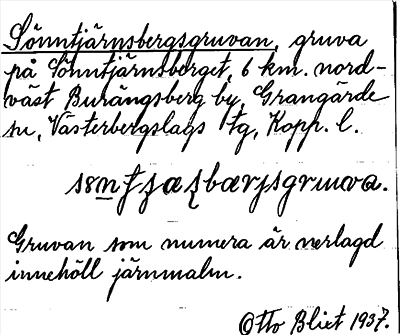 Sönntjärnsbergsgruvan, gruva
på Sönntjärnsberget, 6 km. nord-
väst Burängsberg by, Grangärde
sn, Västerbergslags tg, Kopp. l.
Gruvan som numera är nerlagd
innehöll järnmalm.
Otto Blixt 1937.